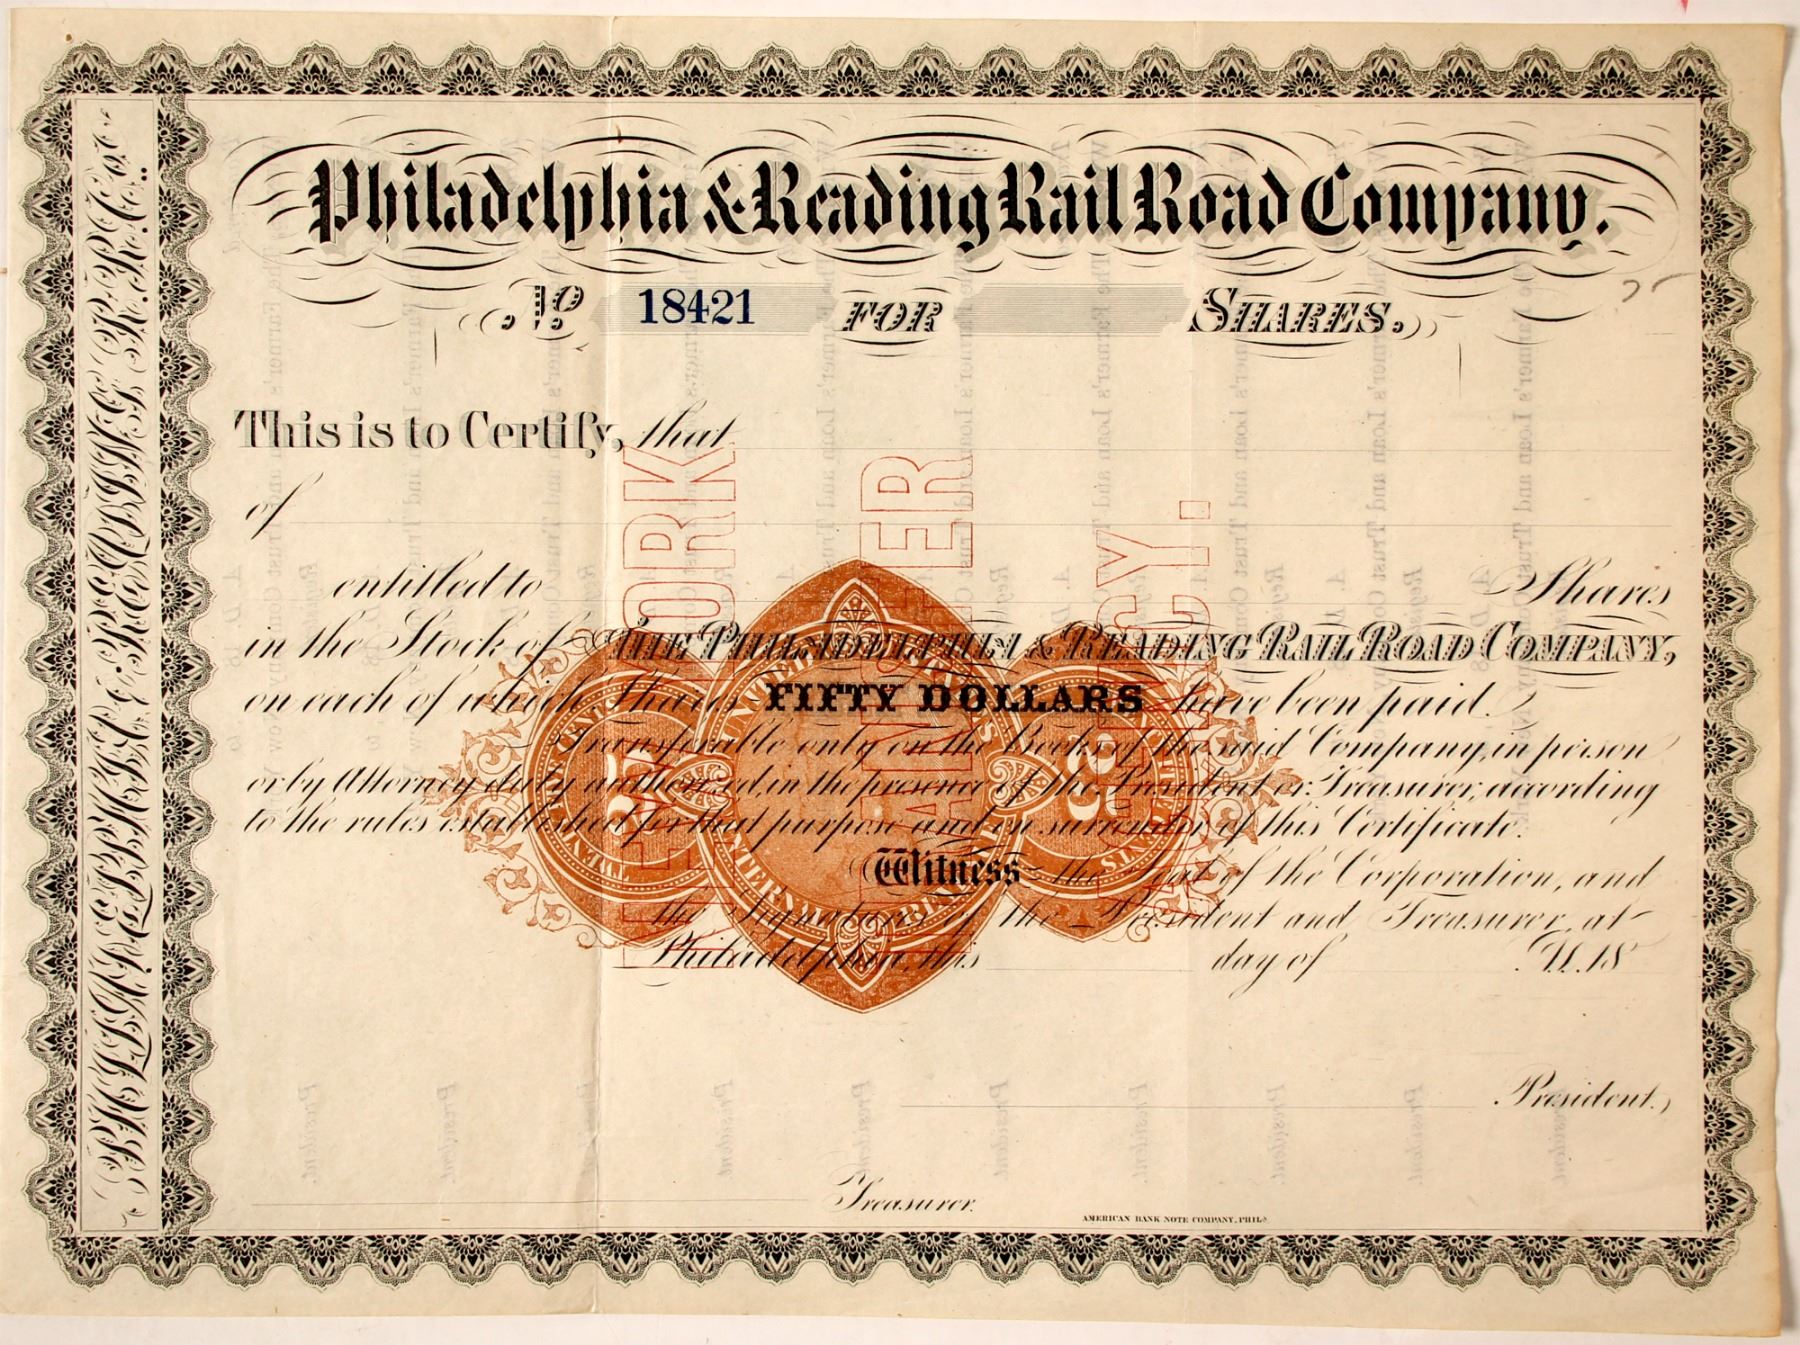 Philadelphia & Reading Rail Road Company.
No 18421 FOR SHARES.
This is to Certify, that
of
entitled to Shares
in the Stock of THE PHILADELPHIA & READING RAIL ROAD COMPANY,
on each of which Shares FIFTY DOLLARS have been paid.
Transferable only on the Books of the said Company, in person
or by Attorney duly authorized, in the presence of the President or Treasurer, according
to the rules established for that purpose and on surrender of this Certificate.
Witness the Seal of the Corporation, and
the Signatures of the President and Treasurer, at
Philadelphia, this day of A.D. 18
President.
Treasurer.
AMERICAN BANK NOTE COMPANY, PHILA.
YORK
TRANSFER
AGENCY.
UNITED STATES
INTERNAL REVENUE
25
25
CENTS